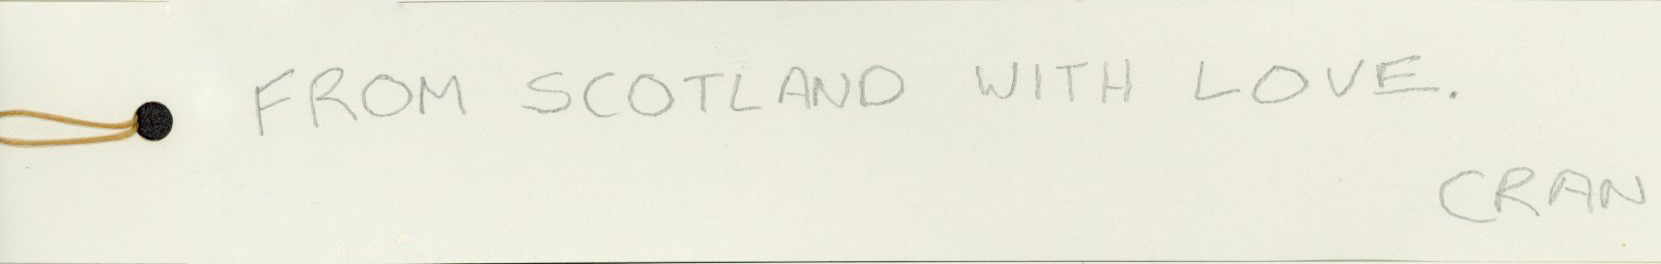 FROM SCOTLAND WITH LOVE.
CRAN